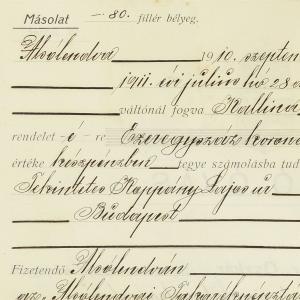 Másolat -- 80. fillér bélyeg.
Alsólendva 1910. szeptem
1911. évi július hó 28 á
váltónál fogva Kallina
rendelet - é - re Ezeregyszáz korona
értéke készpénzben tegye számolásba tud
Tekintetes Koppány Lajos úr
Budapest
Fizetendő Alsólendván
az Alsólendvai Takarékpénztá